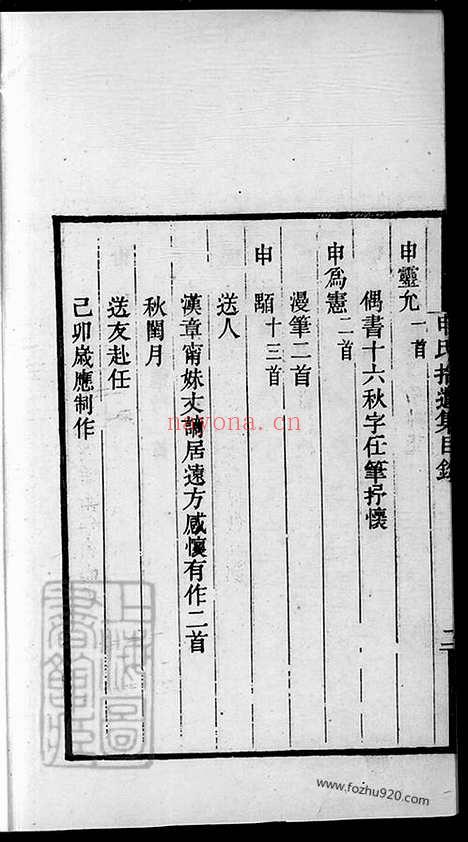 申氏拾遺集目錄
二
申靈允 一首
偶書十六秋字任筆抒懷
申爲憲 二首
漫筆二首
申 十三首
送人
漢章甯妹丈謫居遠方感懷有作二首
秋閨月
送友赴任
己卯歲應制作
上海圖書館藏
nayona.cn
www.fozhu920.com